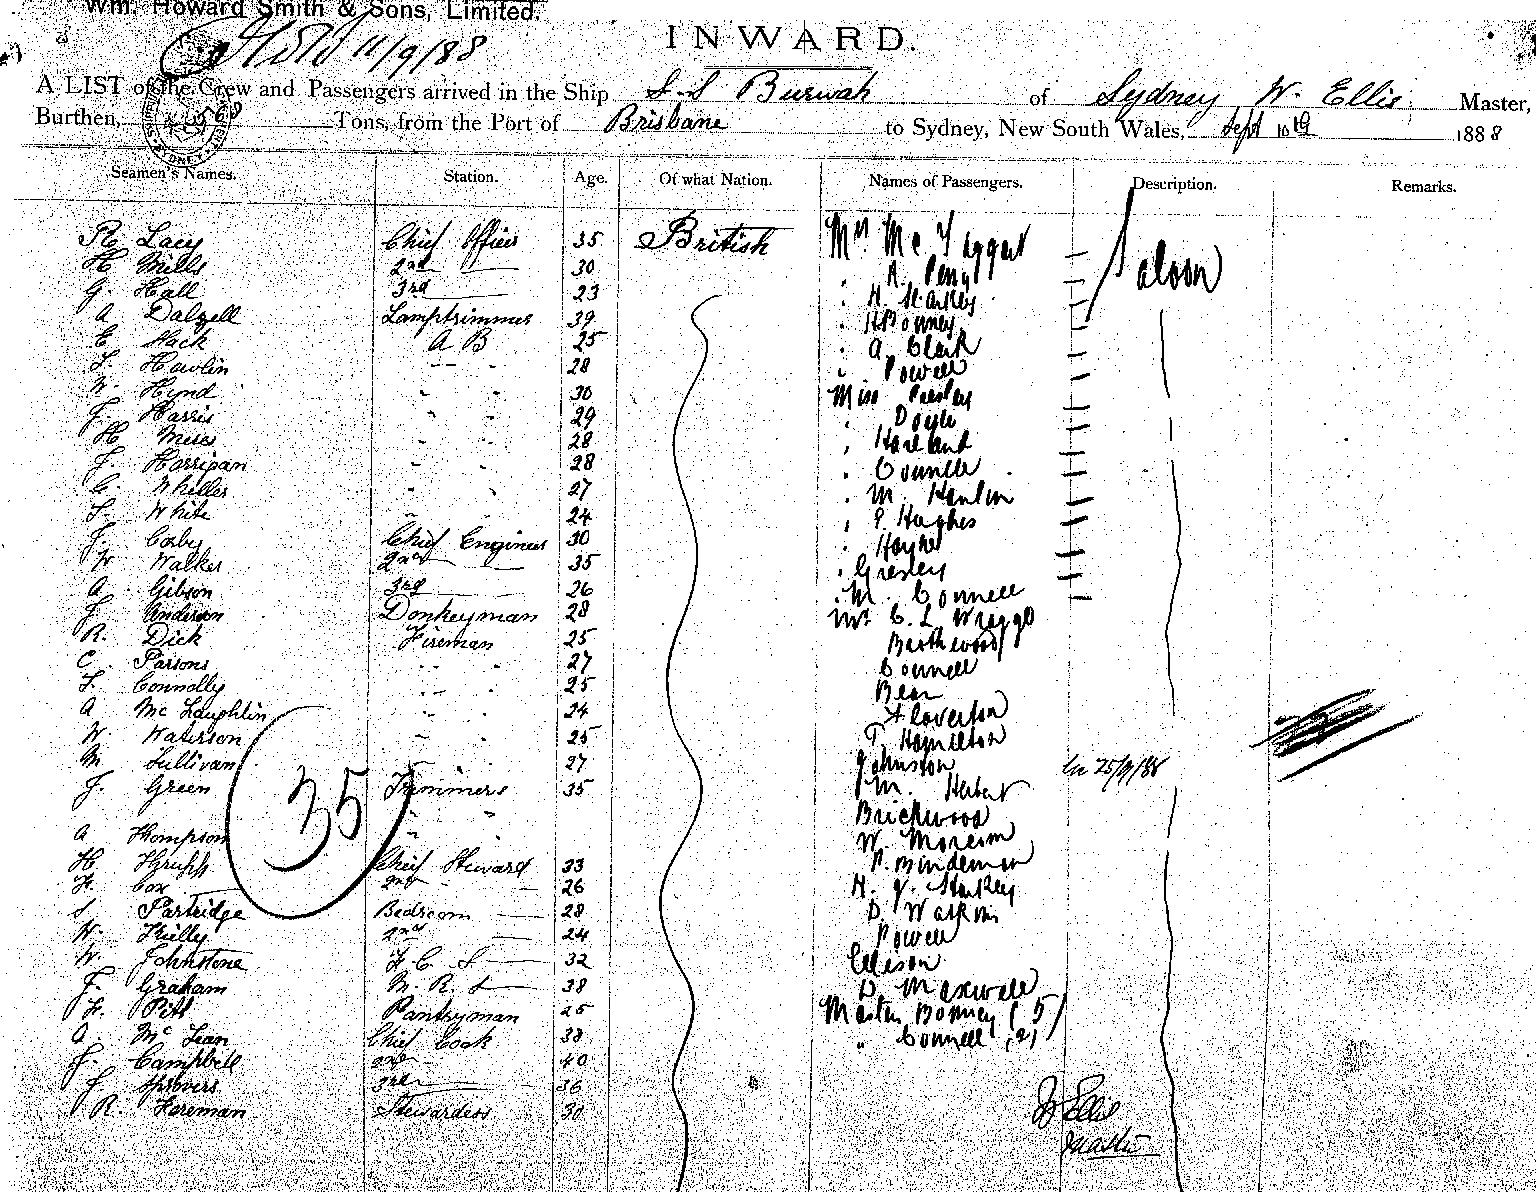 Wm. Howard Smith & Sons, Limited.
11/9/88
INWARD.
A LIST of the Crew and Passengers arrived in the Ship S.S Burwah of Sydney W. Ellis Master,
Burthen, Tons, from the Port of Brisbane to Sydney, New South Wales, Sept 10th 1888
Seamen's Names. Station. Age. Of what Nation. Names of Passengers. Description. Remarks.
R Lacy Chief Officer 35 British Mrs McTaggart Saloon
H Mills 2nd 30 " A. Perry
G. Hall 3rd 23 " H. Starkey
A Dalzell Lamptrimmer 39 " H Bonney
E Mack A B 25 " A. Clark
28 " Powell
W. Hynd " " 30 Miss Presley
J. Harris " " 29 " Doyle
H " " 28 " Harland
J. Horrigan " " 28 " Connell
" " 27 " M. Hanlin
White " " 24 " P. Hughes
J. Cosby Chief Engineer 30 " Hayes
W Walker 2nd 35 " Gresley
A Gibson 3rd 26 " M. Connell
J. Anderson Donkeyman 28 Mr C. L. Wragge
R. Dick Fireman 25
C. Parsons " " 27 Connell
Connolly " " 25 Bear
A McLaughlin " " 24
W. Waterson " " 25 T. Hamilton
M Sullivan " 27 Johnston
J. Green Trimmers 35 M. Herbert
35
" " Brickwood
A Thompson W.
H Chief Steward 33 Bindeman
Cox 2nd 26 H. J. Starkey
Partridge Bedroom 28 D. Watkins
W. Kielly 2nd 24 Powell
W. Johnstone F. C. S 32 Ellison
J. Graham M. R. S 38 D Maxwell
Pitt Pantryman 25 Master Bonney (5)
A. McLean Chief Cook 38 " Connell (2)
J. Campbell 2nd 40
J 3rd 36
R. Foreman Stewardess 30
W Ellis
Master